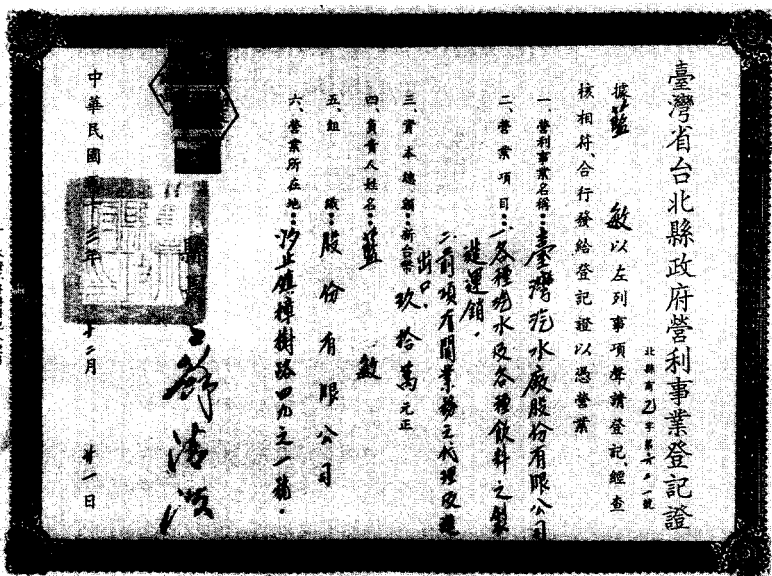 臺灣省台北縣政府營利事業登記證
北縣商乙字第六二一號
據藍　敏以左列事項聲請登記、經查
核相符、合行發給登記證以憑營業
一、營利事業名稱：臺灣汽水廠股份有限公司
二、營業項目：一各種汽水及各種飲料之製
造運銷．
二前項有關業務之代理及進
出口．
三、資本總額：新台幣玖拾萬元正
四、負責人姓名：藍　敏
五、組　織：股份有限公司
六、營業所在地：汐止鎮樟樹路四九之一號．
縣長
中華民國　十三年十二月　廿一日